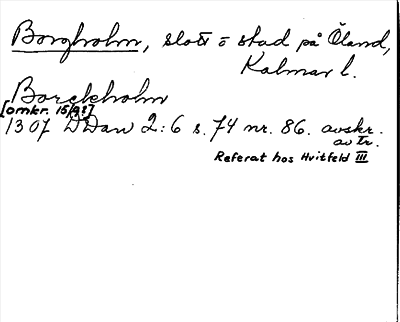 Borgholm, slott o stad på Öland,
Kalmar l.
Borckholm
[omkr. 15/9 87]
1307 DDan 2:6 s. 74 nr. 86. avskr.
av tr.
Referat hos Hvitfeld III